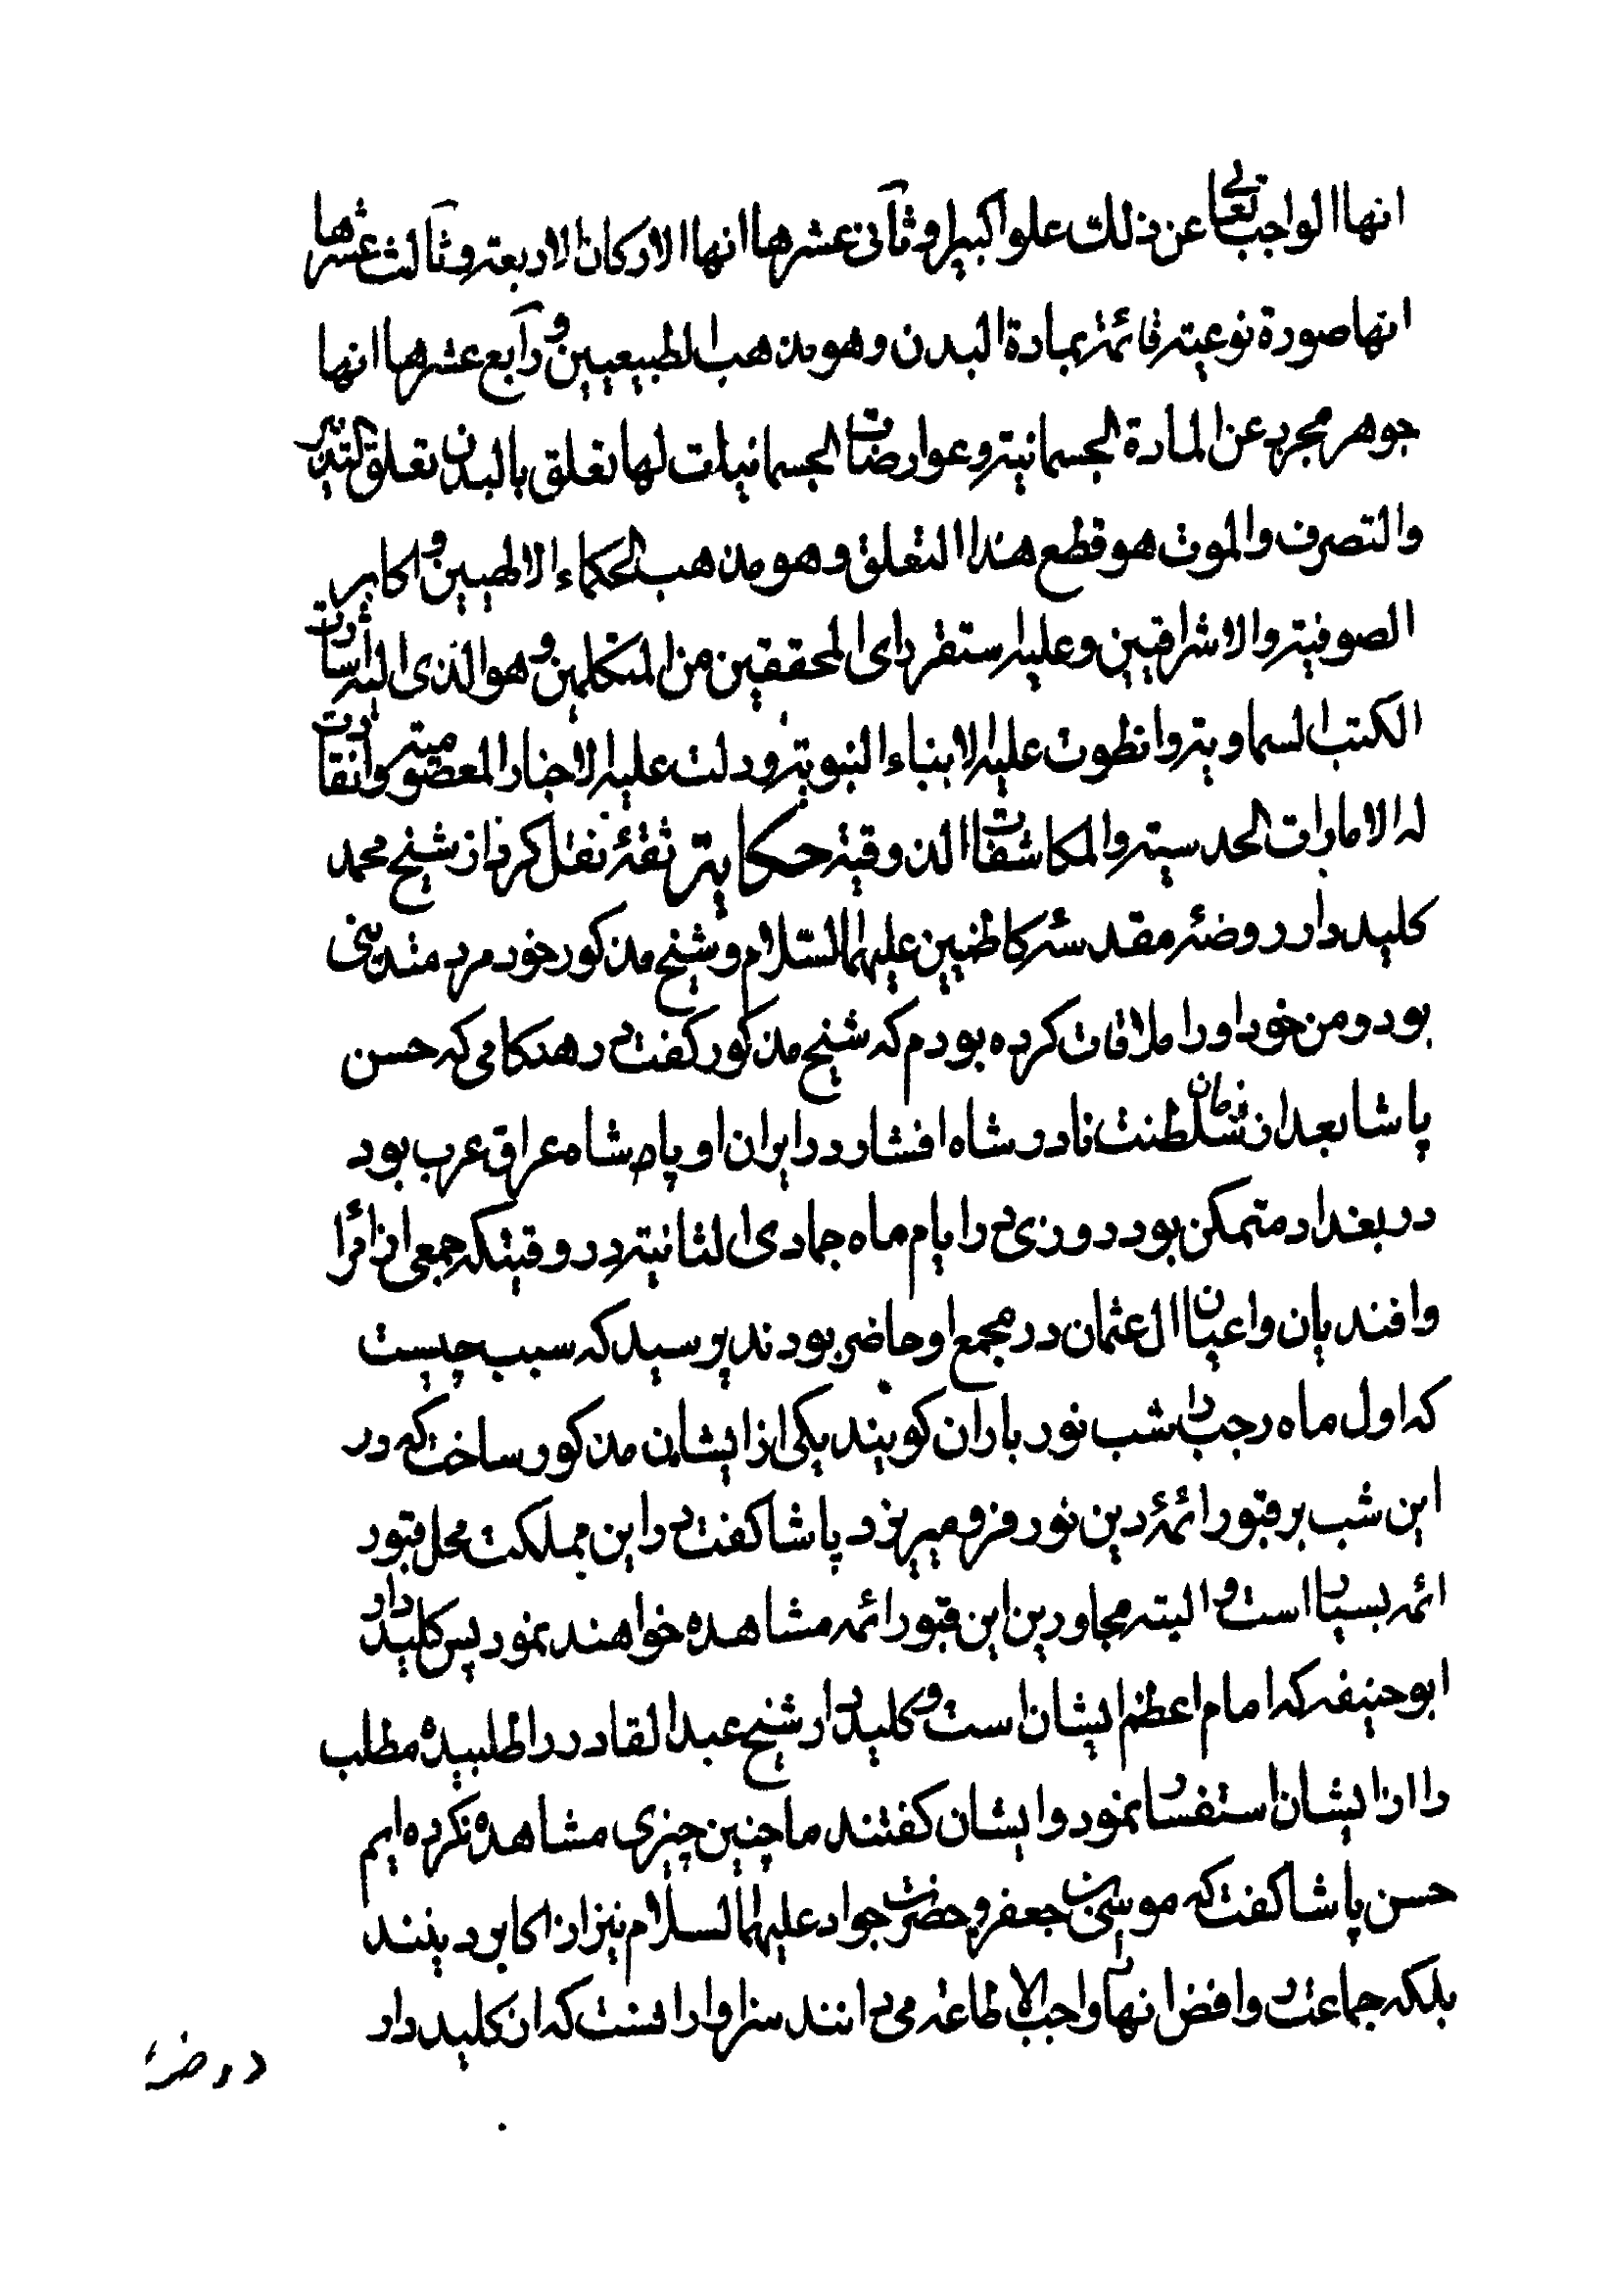 انها الواجب تعالی عن ذلک علوا کبیرا و ثانی عشرها انها الارکان الاربعة و ثالث عشرها
انها صورة نوعیة قائمة بمادة البدن و هو مذهب الطبیعیین و رابع عشرها انها
جوهر مجرد عن المادة الجسمانیة و عوارضات الجسمانیات لها تعلق بالبدن تعلق التدبیر
والتصرف والموت هو قطع هذا التعلق و هو مذهب الحکماء الالهیین و اکابر
الصوفیة والاشراقیین و علیه استقر رای المحققین من المتکلمین و هو الذی الیه اشارت
الکتب السماویة وانطوت علیه الانباء النبویة و دلت علیه الاخبار المعصومیة وانقادت
له الامارات الحدسیة والمکاشفات الذوقیة حکایة ثقۀ نقل کرد از شیخ محمد
کلیددار روضۀ مقدسۀ کاظمین علیهما السّلام و شیخ مذکور خود مرد متدینی
بود و من خود او را ملاقات کرده بودم که شیخ مذکور کفت در هنکامی که حسن
پاشا بعد از زمان سلطنت نادر شاه افشار در ایران او پادشاه عراق عرب بود
در بغداد متمکن بود روزی در ایام ماه جمادی الثانیة در وقیتکه جمعی از امرا
وافندیان واعیان ال عثمان در مجمع او حاضر بودند پرسید که سبب چیست
که اول ماه رجب را شب نور باران کویند یکی از ایشان مذکور ساخت که در
این شب بر قبور ائمۀ دین نور فرو میریزد پاشا کفت در این مملکت محل قبور
ائمه بسیار است و البته مجاورین این قبور ائمه مشاهده خواهند نمود پس کلیددار
ابوحنیفه که امام اعظم ایشان است و کلیددار شیخ عبدالقادر را طلبیده مطلب
را از ایشان استفسار نمود وایشان کفتند ما چنین چیزی مشاهده نکرده ایم
حسن پاشا کفت که موسی بن جعفر و حضرت جواد علیهما السلام نیز از اکابر دینند
بلکه جماعت روافض انها را واجب الاطاعه می دانند سزاوار انست که از کلیددار
روضۀ